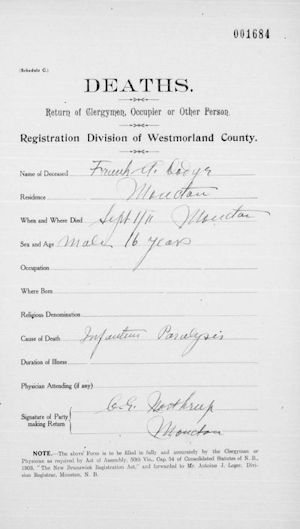 001684
(Schedule C.)
DEATHS.
Return of Clergymen, Occupier or Other Person.
Registration Division of Westmorland County.
Name of Deceased Frank A. Dodge
Residence Moncton
When and Where Died Sept 1/11 Moncton
Sex and Age Male 16 years
Occupation
Where Born
Religious Denomination
Cause of Death Infantum Paralysis
Duration of Illness
Physician Attending (if any)
Signature of Party making Return Northrup
Moncton
NOTE.—The above Form is to be filled in fully and accurately by the Clergyman or
Physician as required by Act of Assembly, 50th Vic., Cap. 54 of Consolidated Statutes of N. B.,
1903, "The New Brunswick Registration Act," and forwarded to Mr. Antoine J. Leger, Divi-
sion Registrar, Moncton, N. B.